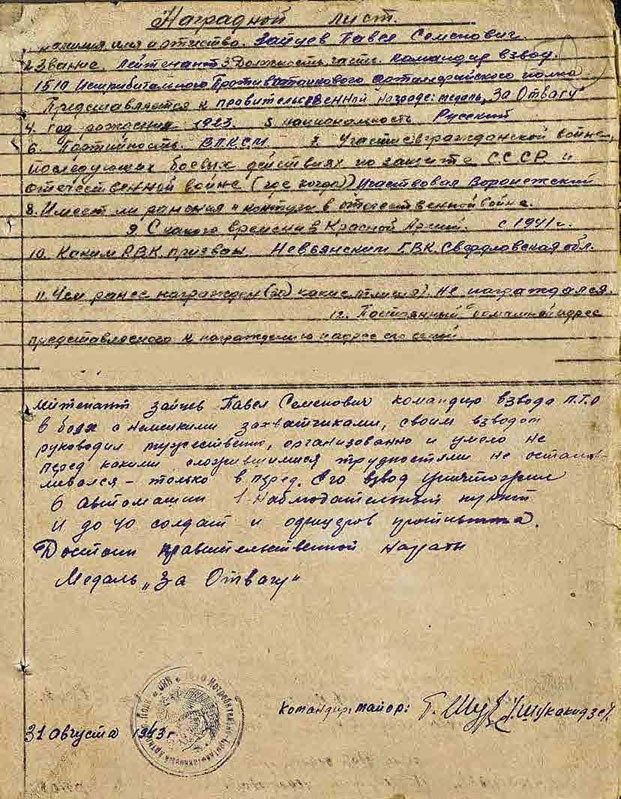 Наградной лист.
Фамилия имя и отчество. Зайцев Павел Семенович.
2. Звание. Лейтенант 3. Должность, часть. Командир взвод.
1510 Истребительного Противотанкового Артиллерийского полка
Представляется к правительственной награде: медаль „За Отвагу"
4. Год рождения. 1923. 5. национальность Русский
6. Партийность. ВЛКСМ 7. Участие в гражданской войне,
последующих боевых действиях по защите СССР и
отечественной войне (где когда) Участвовал Воронежский
8. Имеет ли ранения и контузии в отечественной война.
9. С какого времени в Красной Армии. с 1941 г.
10. Каким РВК призван Невьянским ГВК. Свердловская обл.
11. Чем ранее награжден (за какие отличия). Не награждался.
12. Постоянный домашний адрес
представляемого к награждению и адрес его семьи
Лейтенант Зайцев Павел Семенович командир взвода П.Т.О
в боях с немецкими захватчиками, своим взводом
руководил мужественно, организованно и умело не
перед какими сложившимися трудностями не останав-
ливался – только в перед. Его взвод уничтожил
6 автомашин 1. Наблюдательный пункт
и до 40 солдат и офицеров противника.
Достоин правительственной награды
Медаль „За Отвагу"
Командир майор:
31 Августа 1943 г.